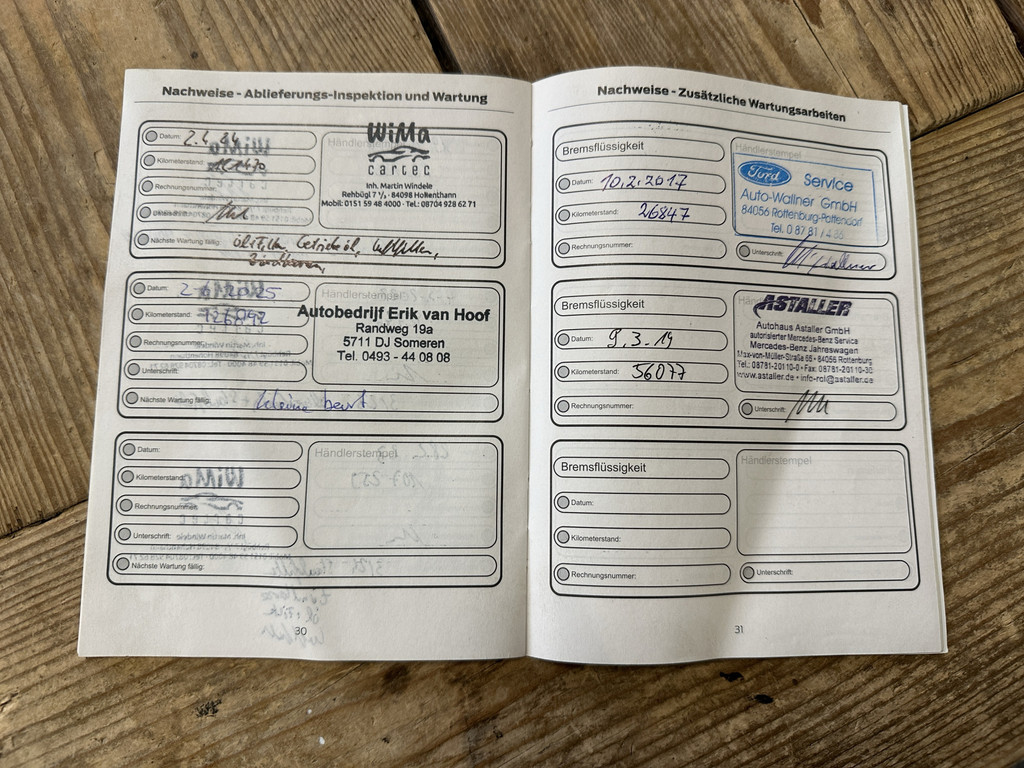 Nachweise - Ablieferungs-Inspektion und Wartung
Datum: 2.4.24
Kilometerstand:
Rechnungsnummer:
Händlerstempel
WiMa
cartec
Inh. Martin Windele
Rehbügl 7 ½ · 84098 Hohenthann
Mobil: 0151 59 48 4000 · Tel.: 08704 928 62 71
Nächste Wartung fällig: Öl+Filter, Getriebeöl,
Datum: 2-6-2025
Kilometerstand: 126892
Rechnungsnummer:
Unterschrift:
Händlerstempel
Autobedrijf Erik van Hoof
Randweg 19a
5711 DJ Someren
Tel. 0493 - 44 08 08
Nächste Wartung fällig: kleine beurt
Datum:
Kilometerstand:
Rechnungsnummer:
Unterschrift:
Händlerstempel
Nächste Wartung fällig:
30
Nachweise - Zusätzliche Wartungsarbeiten
Bremsflüssigkeit
Datum: 10.2.2017
Kilometerstand: 26847
Rechnungsnummer:
Händlerstempel
Ford Service
Auto-Wallner GmbH
84056 Rottenburg-Pattendorf
Tel. 0 87 81 /
Unterschrift:
Bremsflüssigkeit
Datum: 9.3.19
Kilometerstand: 56077
Rechnungsnummer:
ASTALLER
Autohaus Astaller GmbH
autorisierter Mercedes-Benz Service
Mercedes-Benz Jahreswagen
Max-von-Müller-Straße 65 · 84056 Rottenburg
Tel.: 08781-20110-0 · Fax: 08781-20110-30
www.astaller.de · info-rol@astaller.de
Unterschrift:
Bremsflüssigkeit
Datum:
Kilometerstand:
Rechnungsnummer:
Händlerstempel
Unterschrift:
31